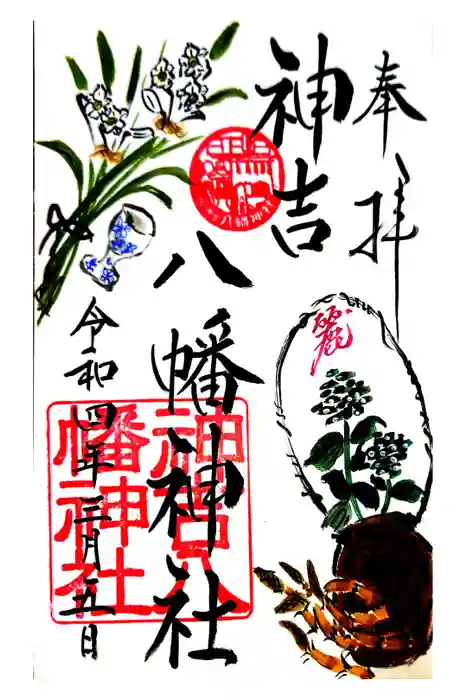 奉拝
神吉
八幡神社
令和四年三月五日
麗
神吉八
幡神社